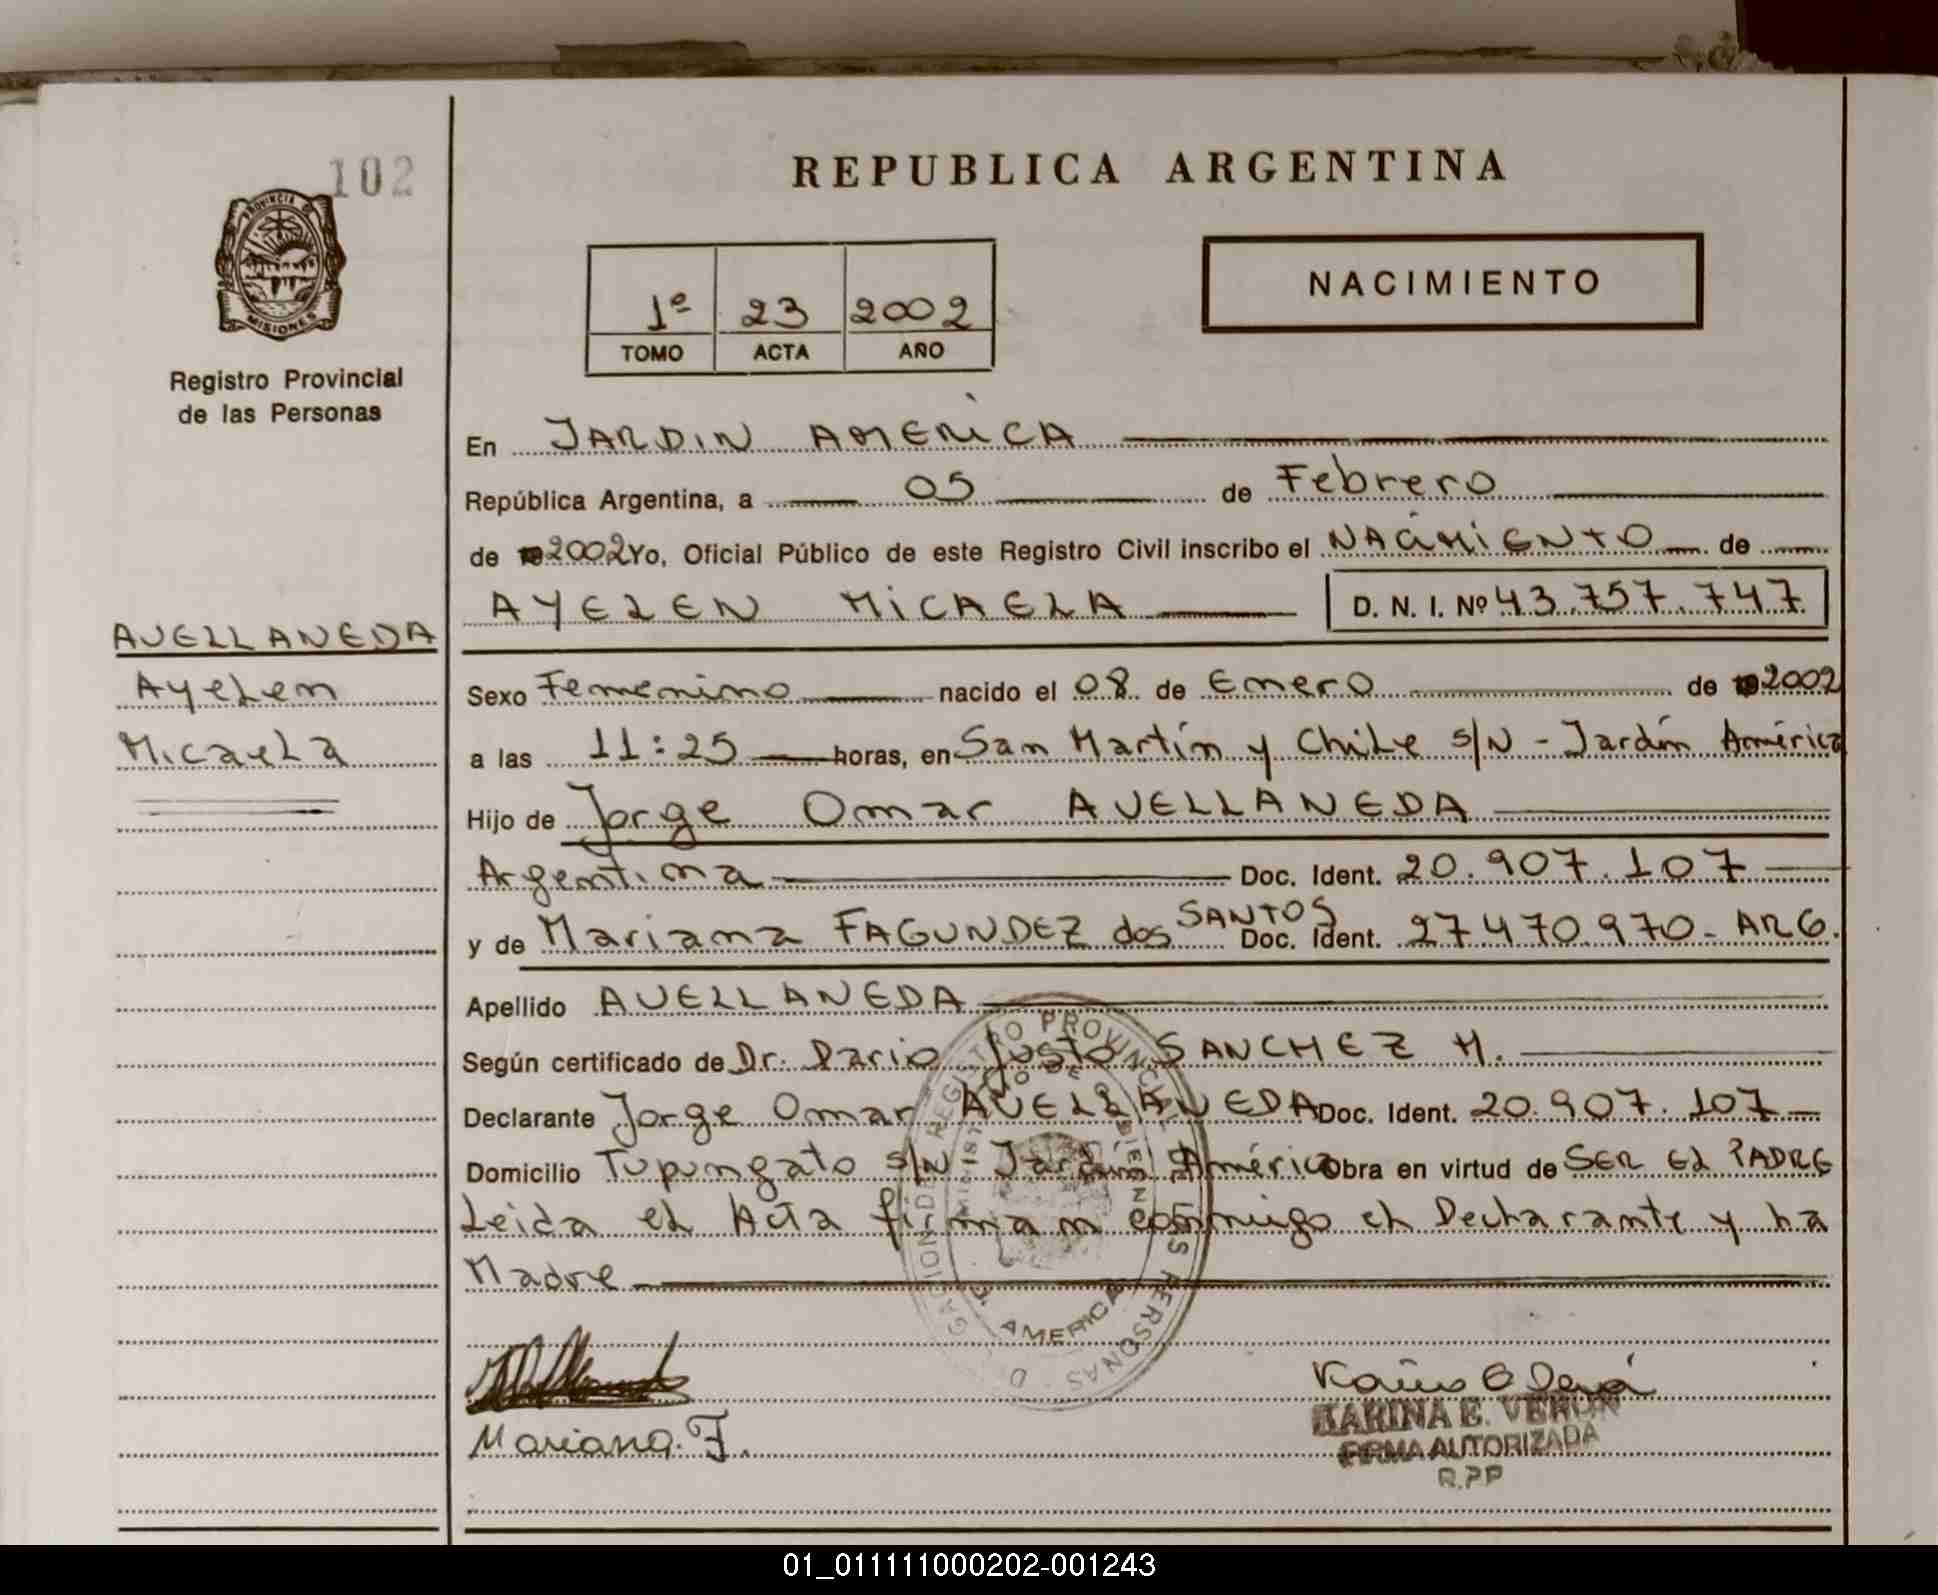 102
PROVINCIA DE
MISIONES
Registro Provincial
de las Personas
REPUBLICA ARGENTINA
1º 23 2002
TOMO ACTA AÑO
NACIMIENTO
En JARDIN AMERICA
República Argentina, a 05 de Febrero
de 2002 Yo, Oficial Público de este Registro Civil inscribo el NACIMIENTO de
AYELEN MICAELA D. N. I. Nº 43.757.747
AVELLANEDA
Ayelen
Micaela
Sexo Femenino nacido el 08 de Enero de 2002
a las 11:25 horas, en San Martín y Chile s/N - Jardín América
Hijo de Jorge Omar AVELLANEDA
Argentina Doc. Ident. 20.907.107
y de Mariana FAGUNDEZ dos SANTOS Doc. Ident. 27470970- ARG.
Apellido AVELLANEDA
Según certificado de Dr. Dario Justo SANCHEZ M.
Declarante Jorge Omar AVELLANEDA Doc. Ident. 20.907.107
Domicilio Tupungato s/N Jardín América Obra en virtud de SER EL PADRE
Leida el Acta firman conmigo el Declarante y la
Madre
REGISTRO PROVINCIAL DE LAS PERSONAS
J. AMERICA
Mariana. F.
KARINA E. VERON
FIRMA AUTORIZADA
R.PP
01_011111000202-001243